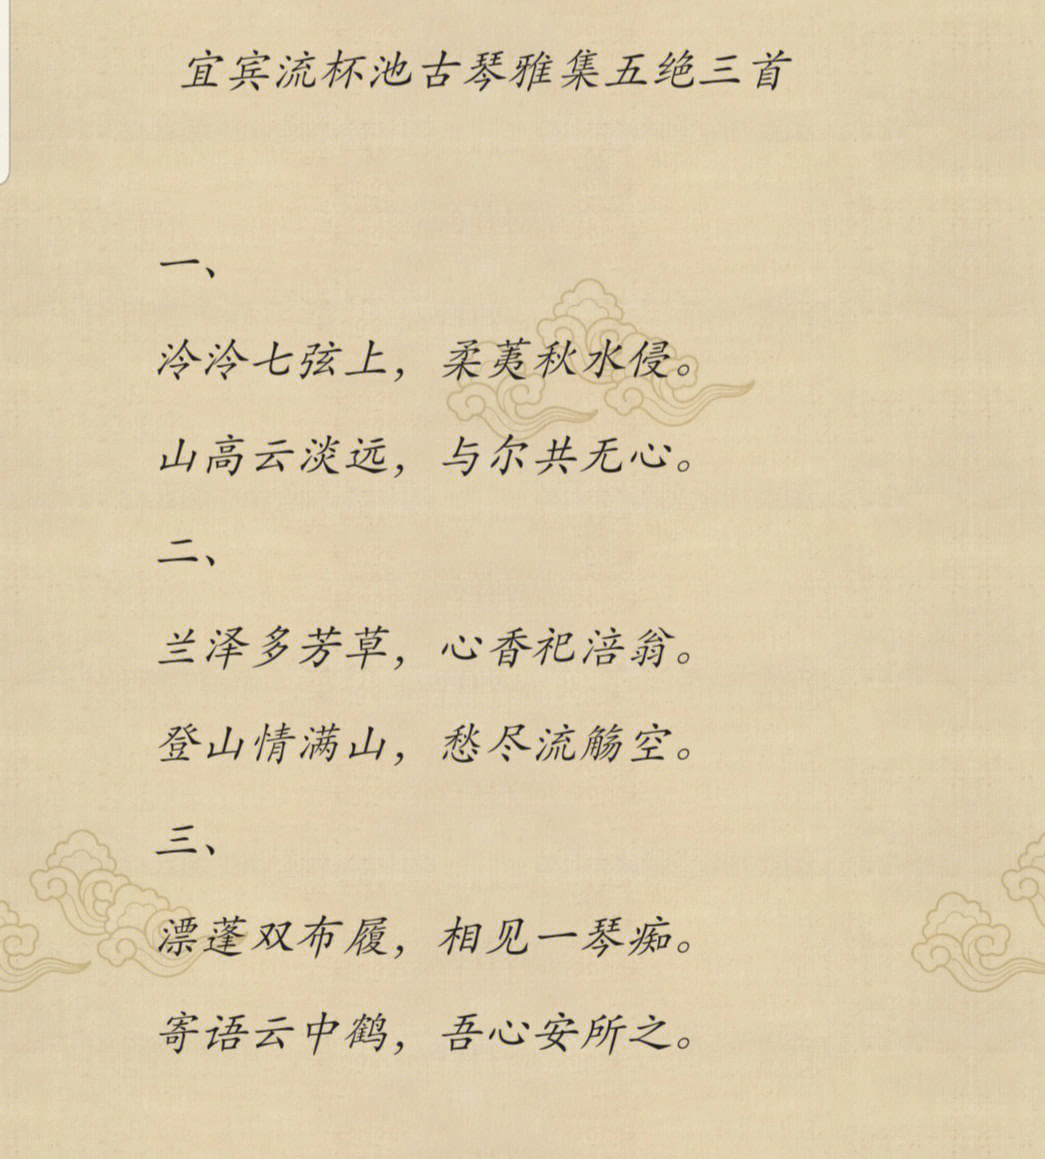 宜宾流杯池古琴雅集五绝三首
一、
泠泠七弦上，柔荑秋水侵。
山高云淡远，与尔共无心。
二、
兰泽多芳草，心香祀涪翁。
登山情满山，愁尽流觞空。
三、
漂蓬双布履，相见一琴痴。
寄语云中鹤，吾心安所之。